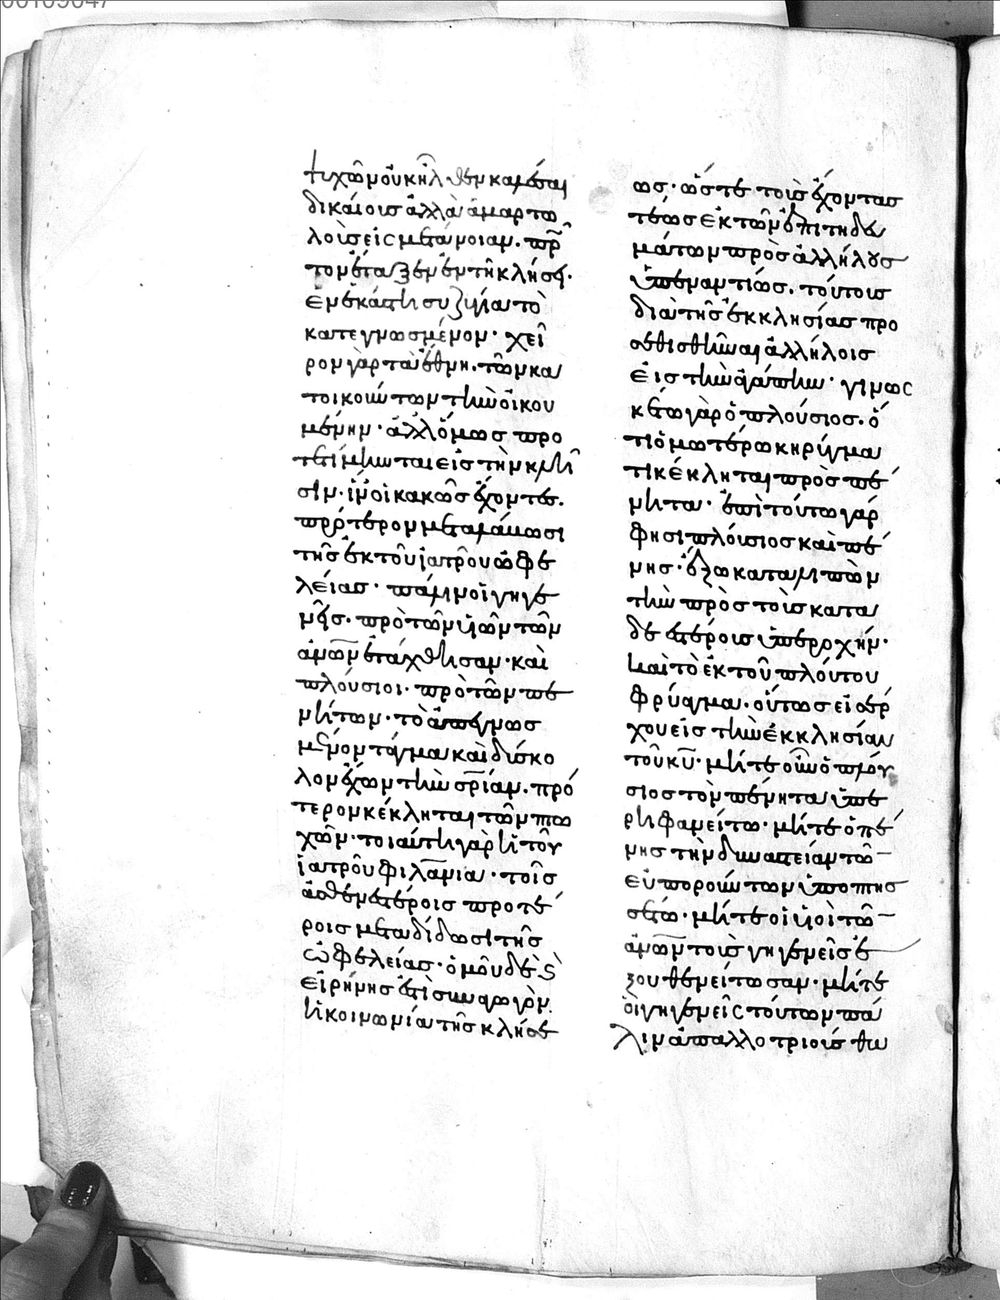 ψυχῶν οὐκ ἦλθεν καλέσαι
δικαίους ἀλλὰ ἁμαρτω
λοὺς εἰς μετάνοιαν· πρ
τον ἔταξεν ἐν τῇ κλήσει·
ἐν ἑκάστῃ συζυγίᾳ τὸ
κατεγνωσμένον· χεῖ
ρον γὰρ τὰ ἔθνη· τῶν κα
τοικούντων τὴν οἰκου
μένην· ἀλλ' ὅμως προ
τετίμηνται εἰς τὴν κλῆ
σιν· ἵν' οἱ κακῶς ἔχοντες·
πρότερον μεταλάβωσι
τῆς ἐκ τοῦ ἰατροῦ ὠφε
λείας· πάλιν οἱ γηγε
νεῖς· πρὸ τῶν υἱῶν τῶν
ἀνων ἐτάχθησαν· καὶ
πλούσιοι· πρὸ τῶν πε
νήτων· τὸ ἀπεγνωσ
μένον τάγμα καὶ δύσκο
λον ἔχων τὴν σρίαν· πρό
τερον κέκληται τῶν πτω
χῶν· τοιαύτη γὰρ ἡ τοῦ
ἰατροῦ φιλανια· τοῖς
ἀσθενεστέροις προτέ
ροις μεταδίδωσι τῆς
ὠφελείας· ὁμοῦ δὲ καὶ
εἰρήνης ἐστὶ συναγωγὸν
ἡ κοινωνία τῆς κλήσε
ως· ὥστε τοὺς ἔχοντας
τέως ἐκ τῶν ἐπιτηδευ
μάτων πρὸς ἀλλήλους
ὑπεναντίως· τούτους
διὰ τῆς ἐκκλησίας προ
σεθισθῆναι ἀλλήλοις
εἰς τὴν ἀγάπην· γινωσ
κέτω γὰρ ὁ πλούσιος· ὅ
τι ὁμωτέρω κηρύγμα
τι κέκληται πρὸς πέ
νητα· ἐπὶ τούτῳ γάρ
φησι πλούσιος καὶ πέ
νης· ἔξω καταλιπὼν
τὴν πρὸς τοὺς κατα
δεεστέρους ὑπεροχήν·
καὶ τὸ ἐκ τοῦ πλούτου
φρύαγμα· οὕτως εἰσέρ
χου εἰς τὴν ἐκκλησίαν
τοῦ κυ· μήτε οὖν ὁ πλού
σιος τὸν πένητα ὑπε
ρηφανείτω· μήτε ὁ πέ
νης τὴν δυναστείαν τῶ
εὐπορούντων ὑποπτησ
σέτω· μήτε οἱ υἱοὶ τῶ
ἀνων τοὺς γηγενεῖς ἐ
ξουθενείτωσαν· μήτε
οἱ γηγενεῖς τούτων πά
λιν ἀπαλλοτριούσθω